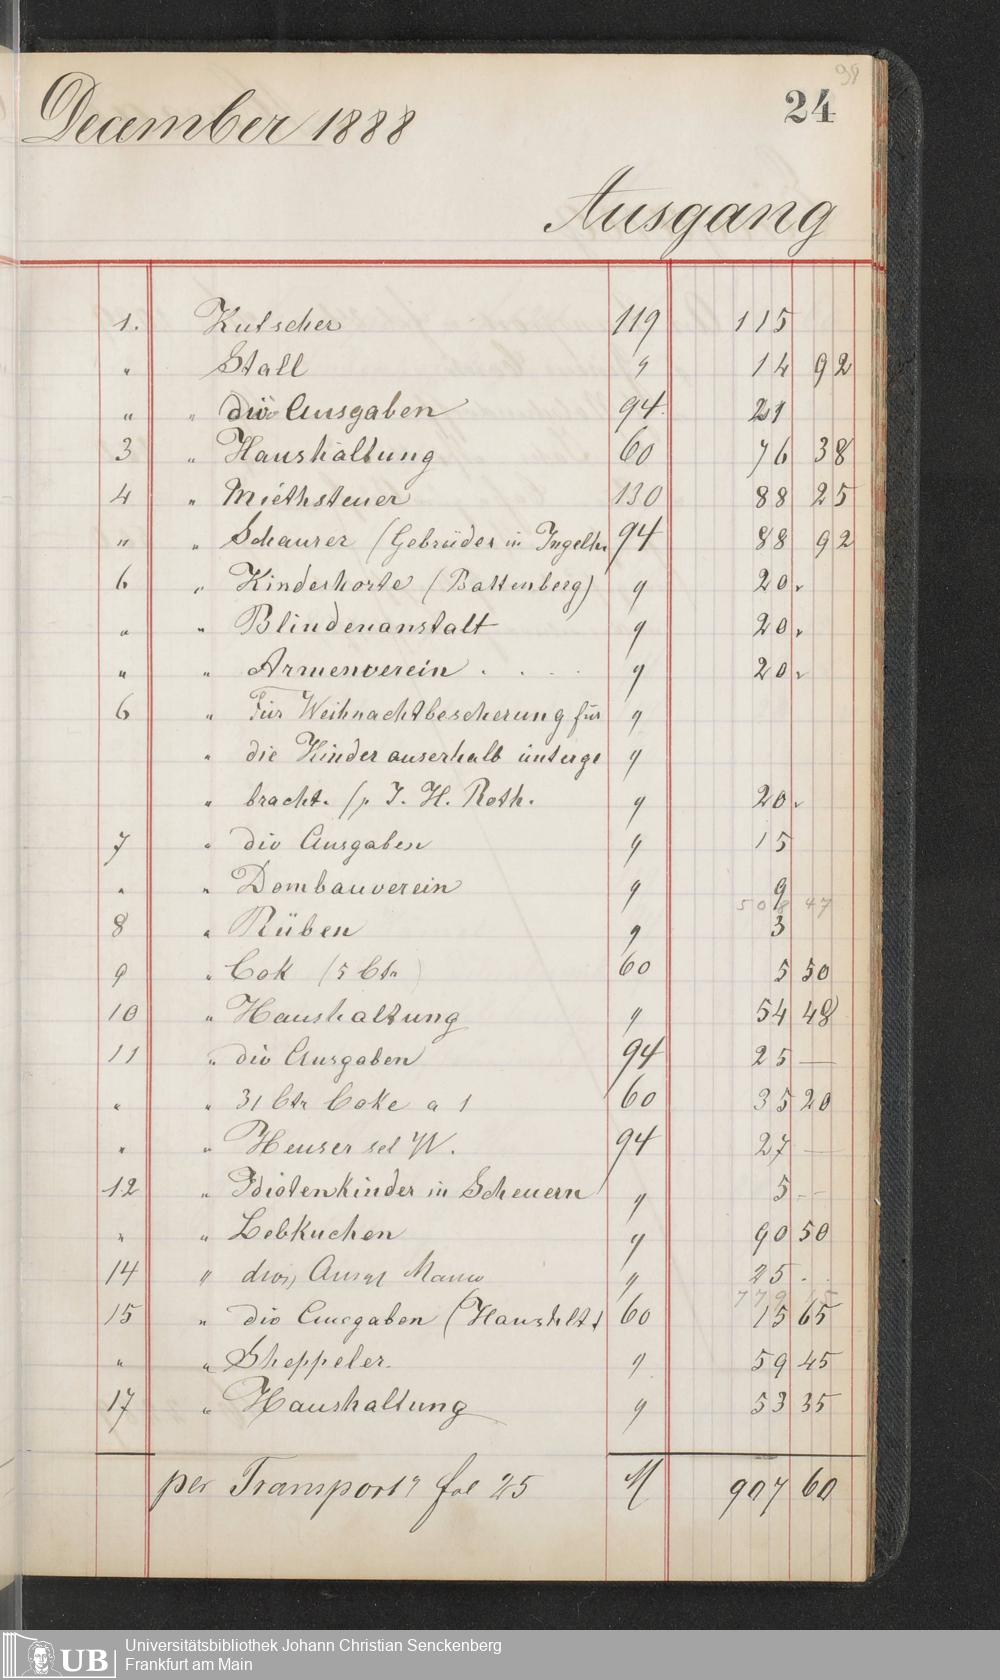 98
24
December 1888
Ausgang
1. Kutscher 119 115
" Stall " 14 92
" " div Ausgaben 94 21
3 " Haushaltung 60 76 38
4 " Miethsteuer 130 88 25
" " Schaurer (Gebrüder in Ingelhe 94 88 92
6 " Kinderhorte (Battenberg) " 20 "
" " Blindenanstalt " 20 "
" " Armenverein . . . . " 20 "
6 " Für Weihnachtbescherung für "
" die Kinder auserhalb unterge "
" bracht. /p J. H. Roth. " 20 "
7 " div Ausgaben " 15
" " Dombauverein " 9
508 47
8 " Rüben " 3
9 " Cok (5 Ctr) 60 5 50
10 " Haushaltung " 54 48
11 " div Ausgaben 94 25 —
" " 31 Ctr Coke a 1 60 35 20
" " Heuser sel W. 94 27 —
12 " Idiotenkinder in Scheuern " 5 —
" " Lebkuchen " 90 50
14 " divs, Ausg " 25 . .
779 15
15 " div Ausgaben (Haushltt 60 15 65
" " Sheppeler. " 59 45
17 " Haushaltung " 53 35
per Transport " fol 25 M 907 60
UB
Universitätsbibliothek Johann Christian Senckenberg
Frankfurt am Main